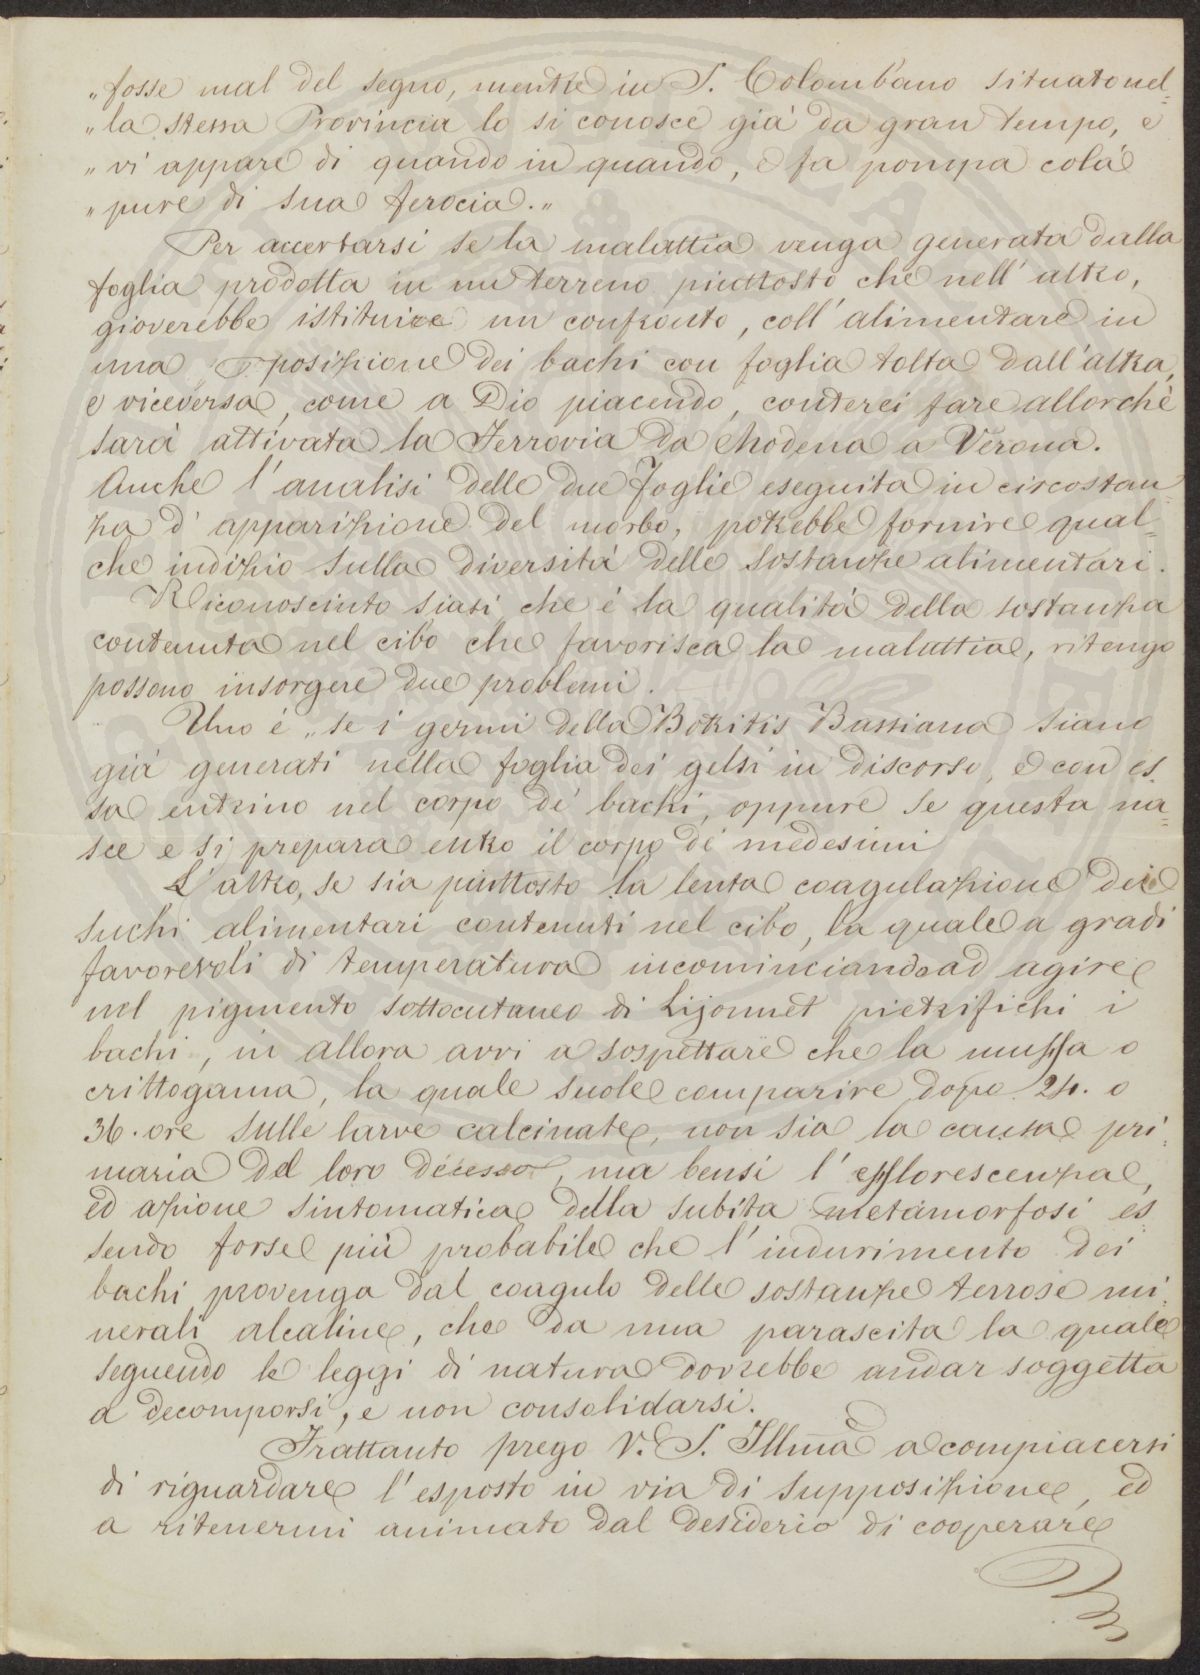 „ fosse mal del segno, mentre in S. Colombano situato nel=
„ la stessa Provincia lo si conosce già da gran tempo, e
„ vi appare di quando in quando, e fa pompa colà
„ pure di sua ferocia. „
Per accertarsi se la malattia venga generata dalla
foglia prodotta in un terreno piuttosto che nell' altro,
gioverebbe istituire un confronto, coll' alimentare in
una posizione dei bachi con foglia tolta dall' altra,
e viceversa, come a Dio piacendo, conterei fare allorchè
sarà attivata la Ferrovia da Modena a Verona.
Anche l' analisi delle due Foglie eseguita in circostan=
za d' apparizione del morbo, potrebbe fornire qual=
che indizio sulla diversità delle sostanze alimentari.
Riconosciuto siasi che è la qualità della sostanza
contenuta nel cibo che favorisca la malattia, ritengo
possono insorgere due problemi.
Uno è „ se i germi della Botritis Bassiana siano
già generati nella foglia dei gelsi in discorso, e con es=
sa entrino nel corpo de' bachi, oppure se questa na=
sce e si prepara entro il corpo de' medesimi
L' altro, se sia piuttosto la lenta coagulazione dei
suchi alimentari contenuti nel cibo, la quale a gradi
favorevoli di temperatura incominciando ad agire
nel pigmento sottocutaneo di Lijonnet pietrifichi i
bachi, in allora avvi a sospettare che la muffa o
crittogama, la quale suole comparire dopo 24. o
36. ore sulle larve calcinate, non sia la causa pri=
maria del loro decesso, ma bensi l' efflorescenza,
ed azione sintomatica della subita metamorfosi es
sendo forse più probabile che l' indurimento dei
bachi provenga dal coagulo delle sostanze terrose mi=
nerali alcaline, che da una parascita la quale
seguendo le leggi di natura dovrebbe andar soggetta
a decomporsi, e non consolidarsi.
Frattanto prego V. S. Illma a compiacersi
di riguardare l' esposto in via di supposizione, ed
a ritenermi animato dal desiderio di cooperare